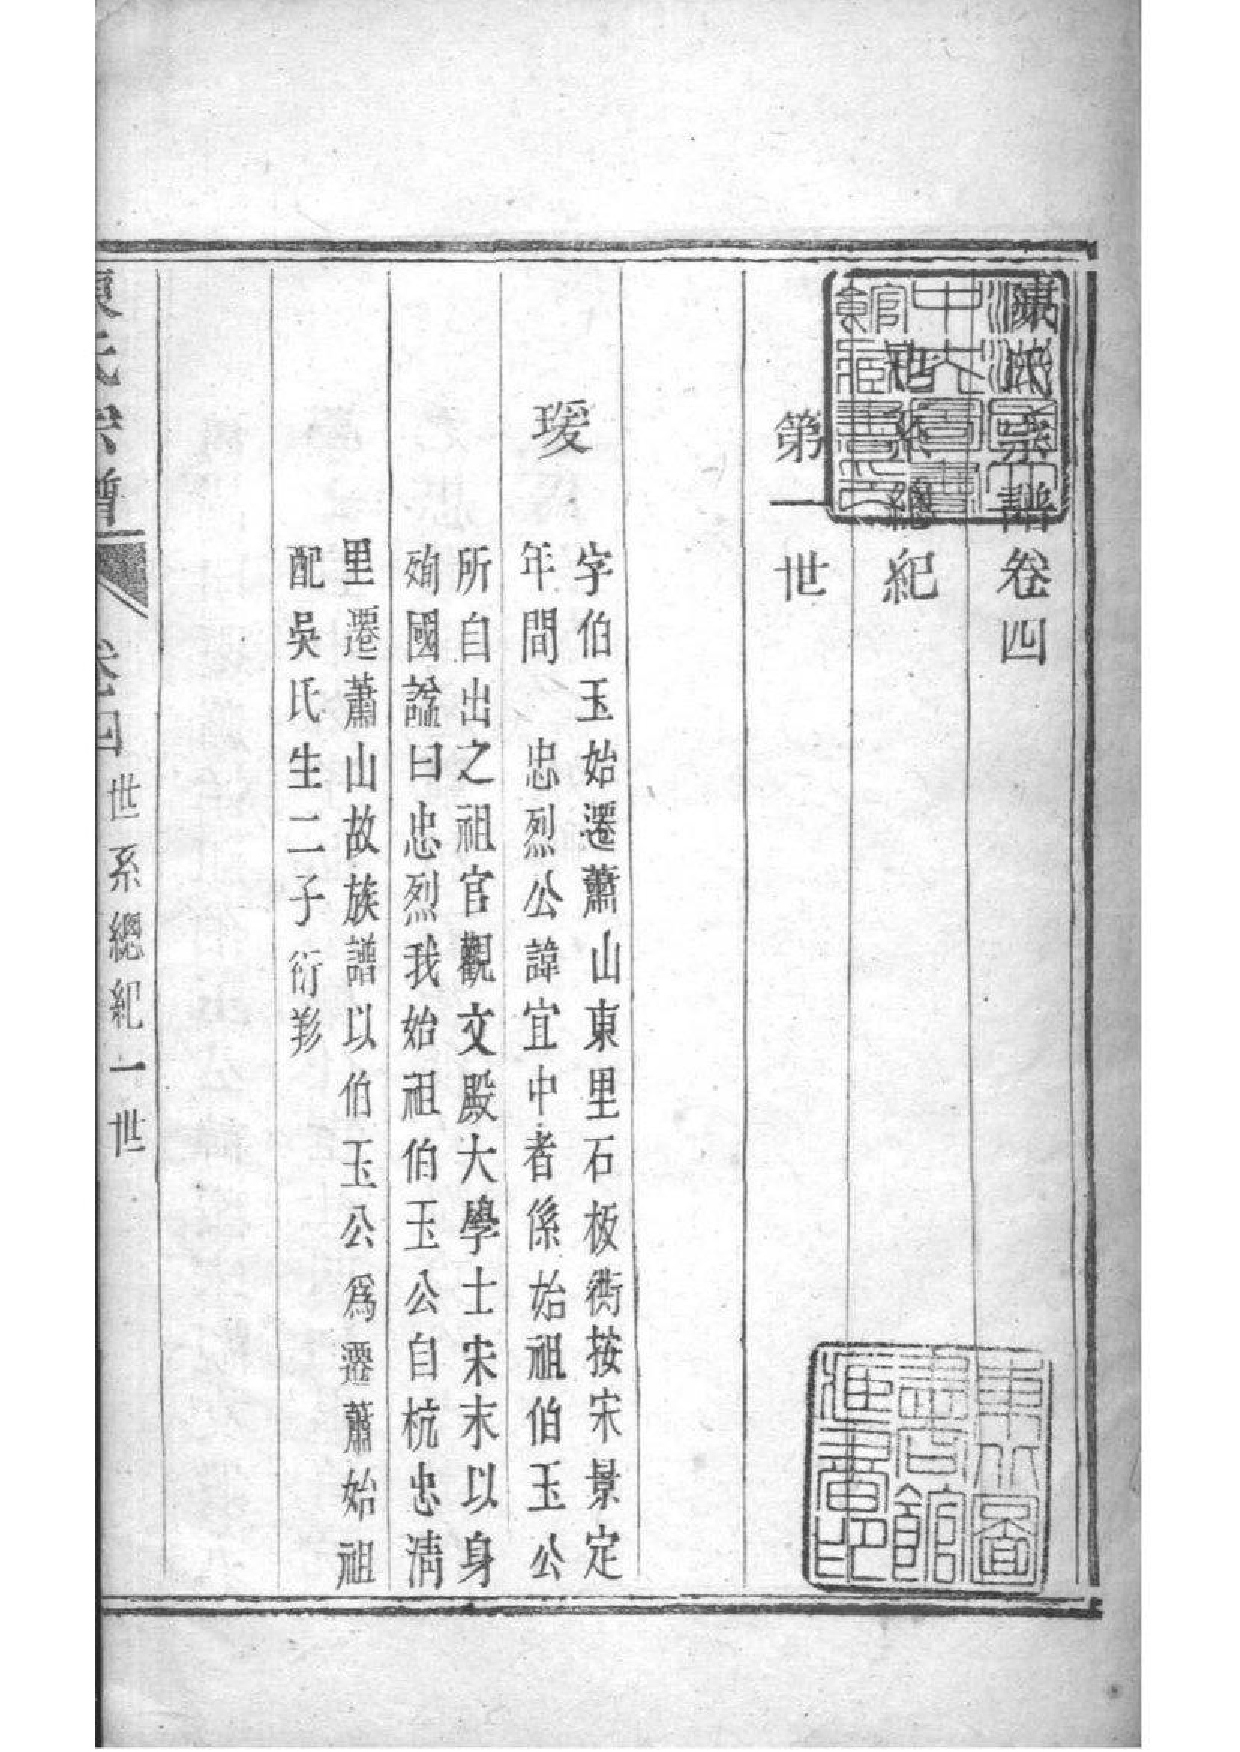 陳氏宗譜卷四
世系總紀
第一世
瑗
字伯玉始遷蕭山東里石板衖按宋景定
年間 忠烈公諱宜中者係始祖伯玉公
所自出之祖官觀文殿大學士宋末以身
殉國諡曰忠烈我始祖伯玉公自杭忠清
里遷蕭山故族譜以伯玉公爲遷蕭始祖
配吳氏生二子衍
陳氏宗譜 卷四 世系總紀一世
東北圖書館藏書印